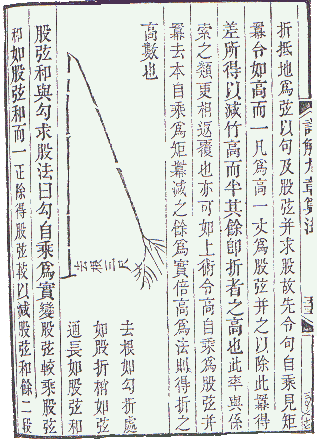 折抵地為弦以句及股弦并求股故先令句自乘見矩
羃令如高而一凡為高一丈為股弦并之以除此羃得
差所得以減竹高而半其餘即折者之高也此率與係
索之類更相返覆也亦可如上術令高自乘為股弦并
羃去本自乘為矩羃減之餘為實倍高為法則得折之
高數也
去根三尺
去根如勾折處
如股折梢如弦
通長如股弦和
股弦和與勾求股法曰勾自乘為實變股弦較乘股弦
和如股弦和而一正除得股弦較以減股弦和餘二段
詳解九章算法